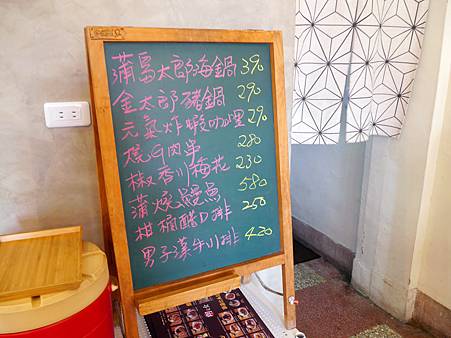 蒲島太郎海鍋 390
金太郎豬鍋 290
元氣炸蝦咖哩 290
燒肉串 280
椒香川梅花 230
蒲燒鰻魚 580
柑桔醋D排 250
男子漢牛小排 420